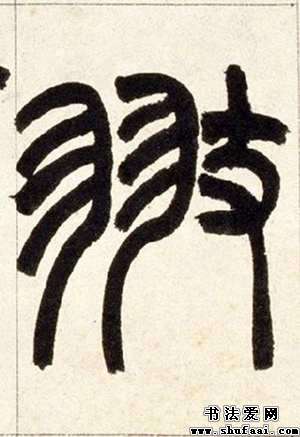 翅
书法爱网
www.shufaai.com